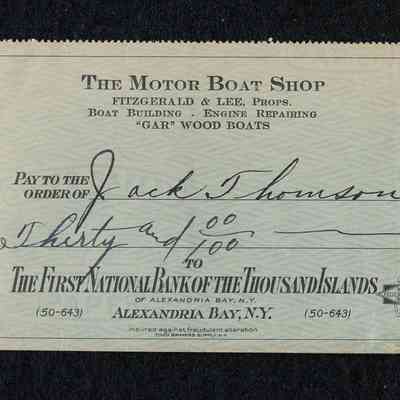 THE MOTOR BOAT SHOP
FITZGERALD & LEE, PROPS.
BOAT BUILDING - ENGINE REPAIRING
"GAR" WOOD BOATS
PAY TO THE
ORDER OF Jack Thomson
Thirty and 00/100
TO
THE FIRST NATIONAL BANK OF THE THOUSAND ISLANDS
OF ALEXANDRIA BAY, N.Y.
(50-643) ALEXANDRIA BAY, N.Y. (50-643)
insured against fraudulent alteration